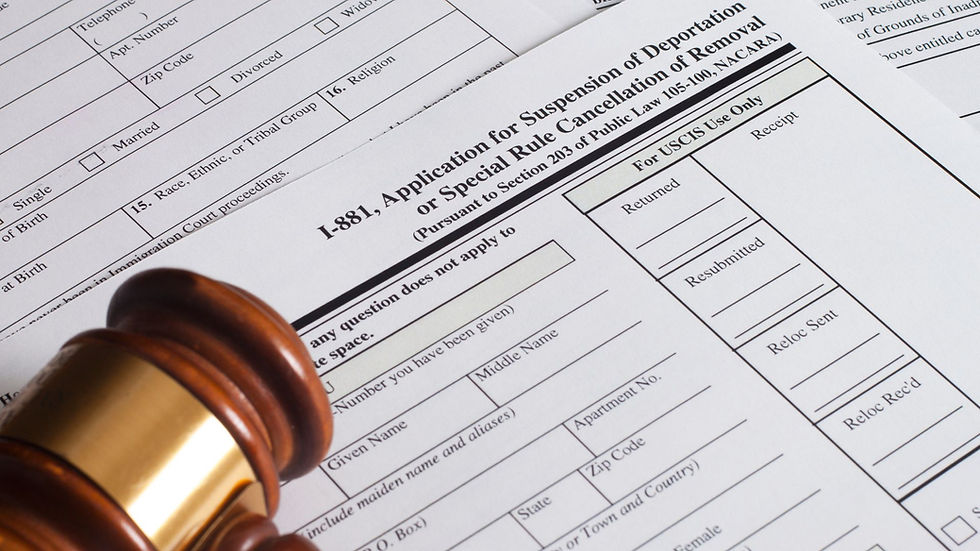 Telephone
(          )
Apt. Number
Zip Code
Divorced
16. Religion
Married
15. Race, Ethnic, or Tribal Group
Single
of Birth
at Birth
never been in Immigration Court proceedings.
in the past
of Grounds of
above entitled
I-881, Application for Suspension of Deportation
or Special Rule Cancellation of Removal
(Pursuant to Section 203 of Public Law 105-100, NACARA)
For USCIS Use Only
Returned
Receipt
Resubmitted
Reloc Sent
Reloc Rec'd
any question does not apply to
space.
Number you have been given)
Given Name
Middle Name
include maiden name and aliases)
Apartment No.
O. Box)
State
Zip Code
or Town and Country)
Female